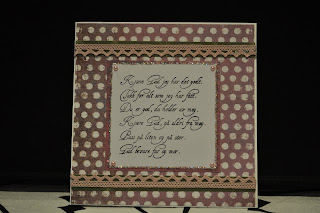 Kjære Gud jeg har det godt.
Takk for alt som jeg har fått.
Du er god, du holder av meg.
Kjære Gud, gå aldri fra meg.
Pass på liten og på stor.
Gud bevare far og mor.